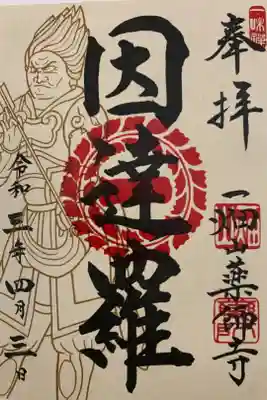 奉拝
一畑山薬師寺
因達羅
令和三年四月三日